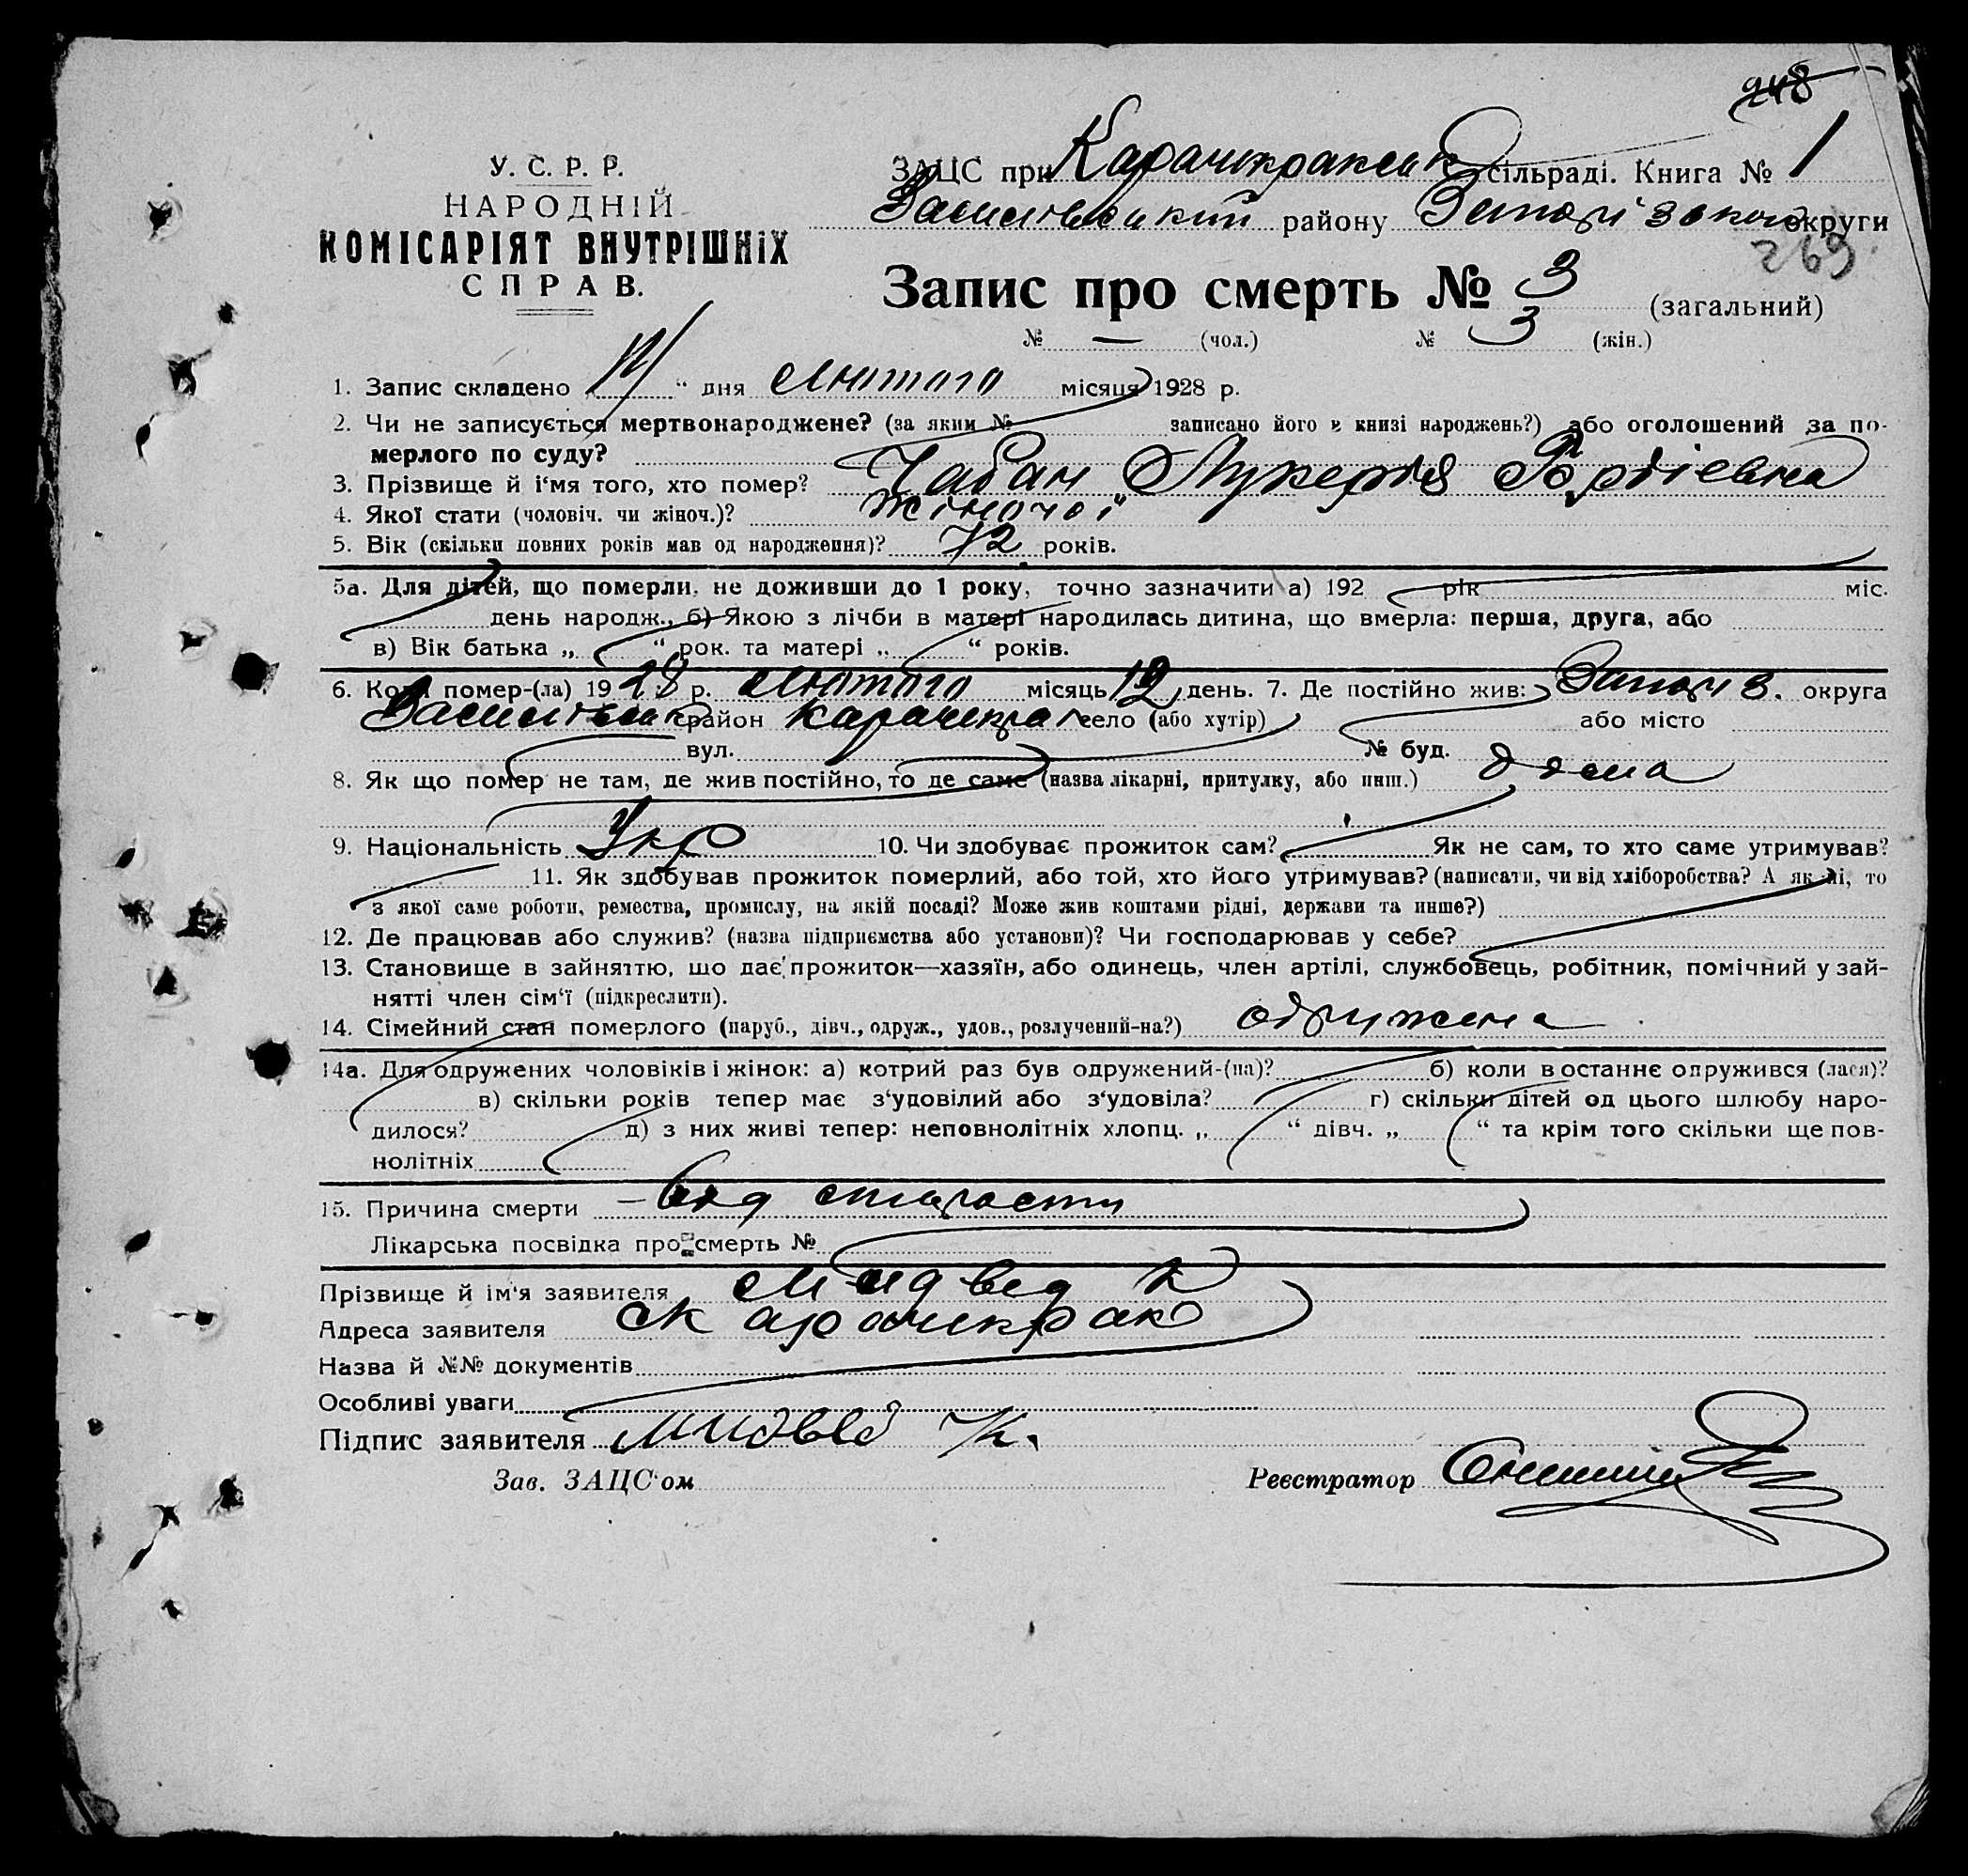 248
У. С. Р. Р.
НАРОДНІЙ
КОМІСАРІЯТ ВНУТРІШНІХ
СПРАВ.
ЗАЦС при Карачикракськ сільраді. Книга № 1
Василівський району Запорізької округи
269
Запис про смерть № 3 (загальний)
№ — (чол.) № 3 (жін.)
1. Запис складено " дня Лютого місяця 1928 р.
2. Чи не записується мертвонароджене? (за яким № записано його в книзі народжень?) або оголошений за по-
мерлого по суду?
3. Прізвище й і'мя того, хто помер? Чабан Лукерія Гордіевна
4. Якої стати (чоловіч. чи жіноч.)? жіночоі
5. Вік (скільки повних років мав од народження)? 72 років.
5а. Для дітей, що померли, не доживши до 1 року, точно зазначити а) 192 рік міс.
день народж., б) Якою з лічби в матері народилась дитина, що вмерла: перша, друга, або
в) Вік батька „ “ рок. та матері „ “ років.
6. Коли помер-(ла) 1928 р. Лютого місяць 12 день. 7. Де постійно жив: Запоріз. округа
Василівськ район Карачикрак село (або хутір) або місто
вул. № буд.
8. Як що помер не там, де жив постійно, то де саме (назва лікарні, притулку, або инш.) дома
9. Національність Укр 10. Чи здобуває прожиток сам? Як не сам, то хто саме утримував?
11. Як здобував прожиток померлий, або той, хто його утримував? (написати, чи від хліборобства? А як ні, то
з якої саме роботи, ремества, промислу, на якій посаді? Може жив коштами рідні, держави та инше?)
12. Де працював або служив? (назва підприємства або установи)? Чи господарював у себе?
13. Становище в зайняттю, що дає прожиток—хазяїн, або одинець, член артілі, службовець, робітник, помічний у зай-
нятті член сім'ї (підкреслити).
14. Сімейний стан померлого (паруб., дівч., одруж., удов., розлучений-на?) одружена
14а. Для одружених чоловіків і жінок: а) котрий раз був одружений-(на)? б) коли востаннє одружився (лася)?
в) скільки років тепер має з'удовілий або з'удовіла? г) скільки дітей од цього шлюбу наро-
дилося? д) з них живі тепер: неповнолітніх хлопц. „ “ дівч. „ “ та крім того скільки ще пов-
нолітніх
15. Причина смерти – від старости
Лікарська посвідка про смерть №
Прізвище й ім'я заявителя Мидвед К
Адреса заявителя с Карачикрак
Назва й №№ документів
Особливі уваги
Підпис заявителя Мидвед К.
Зав. ЗАЦС'ом Реєстратор